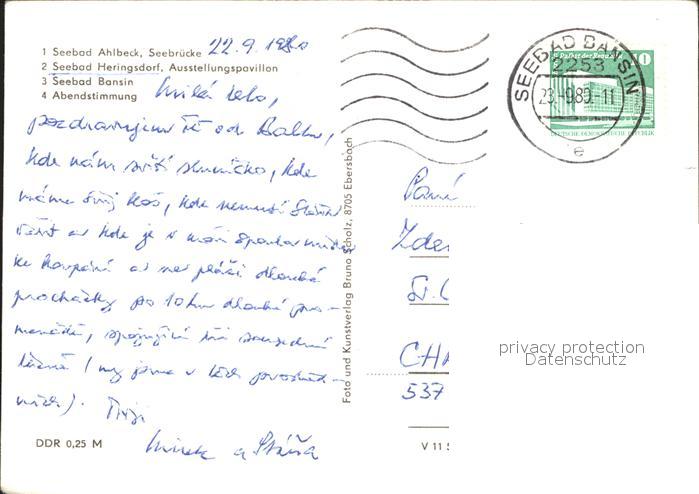 22.9.1980
1 Seebad Ahlbeck, Seebrücke
2 Seebad Heringsdorf, Ausstellungspavillon
3 Seebad Bansin
4 Abendstimmung
Milá
pozdravujeme Tě od Baltu,
kde nám svítí sluníčko, kde
máme svůj koš, kde nemusí Stáňa
vařit a kde je v moři spousta
ke koupání a na pláži dlouhé
procházky po 10 km dlouhé pro-
menádě, spojující tři sousední
lázně (my jsme v těch prostřed-
ních). Tvoji
Mirek a Stáňa
DDR 0,25 M
Foto und Kunstverlag Bruno Scholz, 8705 Ebersbach
V 11
SEEBAD BANSIN
2253
23.-9.80.-11
e
10
Palast der Republik
DEUTSCHE DEMOKRATISCHE REPUBLIK
Paní
Zde
537
privacy protection
Datenschutz